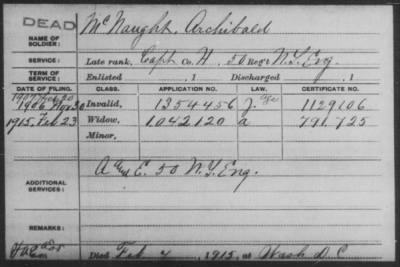 DEAD
NAME OF SOLDIER: McNaught, Archibald
SERVICE: Late rank, Capt. Co. H, 50 Reg't N.Y. Eng.
TERM OF SERVICE: Enlisted , 1 Discharged , 1
DATE OF FILING. CLASS. APPLICATION NO. LAW. CERTIFICATE NO.
1907
1906 Nov 20 Invalid, 1354456 J. age 1129106
1915, Feb 23 Widow, 1042120 a 791.725
Minor,
ADDITIONAL SERVICES: A and E. 50 N.Y. Eng.
REMARKS:
Died Feb 4, 1915, at Wash D.C.